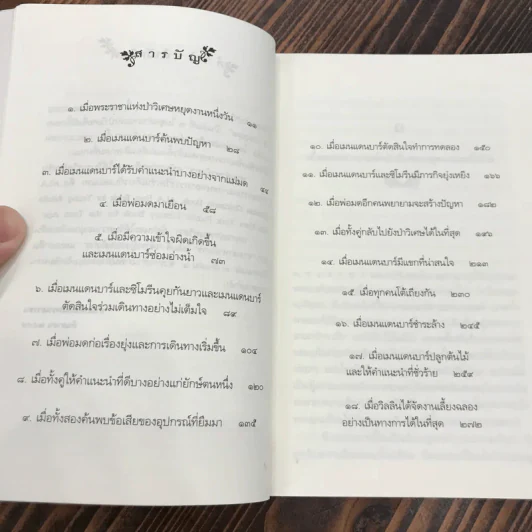 สารบัญ
๑. เมื่อพระราชาแห่งป่าวิเศษหยุดงานหนึ่งวัน ๑๑
๒. เมื่อเมนแดนบาร์ค้นพบปัญหา ๒๘
๓. เมื่อเมนแดนบาร์ได้รับคำแนะนำบางอย่างจากแม่มด
๔. เมื่อพ่อมดมาเยือน ๕๘
๕. เมื่อมีความเข้าใจผิดเกิดขึ้น
และเมนแดนบาร์ซ่อมอ่างน้ำ ๗๓
๖. เมื่อเมนแดนบาร์และซิโมรีนคุยกันยาวและเมนแดนบาร์
ตัดสินใจร่วมเดินทางอย่างไม่เต็มใจ ๘๙
๗. เมื่อพ่อมดก่อเรื่องยุ่งและการเดินทางเริ่มขึ้น ๑๐๔
๘. เมื่อทั้งคู่ให้คำแนะนำที่ดีบางอย่างแก่ยักษ์ตนหนึ่ง ๑๒๐
๙. เมื่อทั้งสองค้นพบข้อเสียของอุปกรณ์ที่ยืมมา ๑๓๕
๑๐. เมื่อเมนแดนบาร์ตัดสินใจทำการทดลอง ๑๕๐
๑๑. เมื่อเมนแดนบาร์และซิโมรีนมีภารกิจยุ่งเหยิง ๑๖๖
๑๒. เมื่อพ่อมดอีกคนพยายามจะสร้างปัญหา ๑๘๒
๑๓. เมื่อทั้งคู่กลับไปยังป่าวิเศษได้ในที่สุด ๑๙๖
๑๔. เมื่อเมนแดนบาร์มีแขกที่น่าสนใจ ๒๑๓
๑๕. เมื่อทุกคนโต้เถียงกัน ๒๓๐
๑๖. เมื่อเมนแดนบาร์ชำระล้าง ๒๔๕
๑๗. เมื่อเมนแดนบาร์ปลูกต้นไม้
และให้คำแนะนำที่ชั่วร้าย ๒๕๙
๑๘. เมื่อวิลลินได้จัดงานเลี้ยงฉลอง
อย่างเป็นทางการได้ในที่สุด ๒๗๒